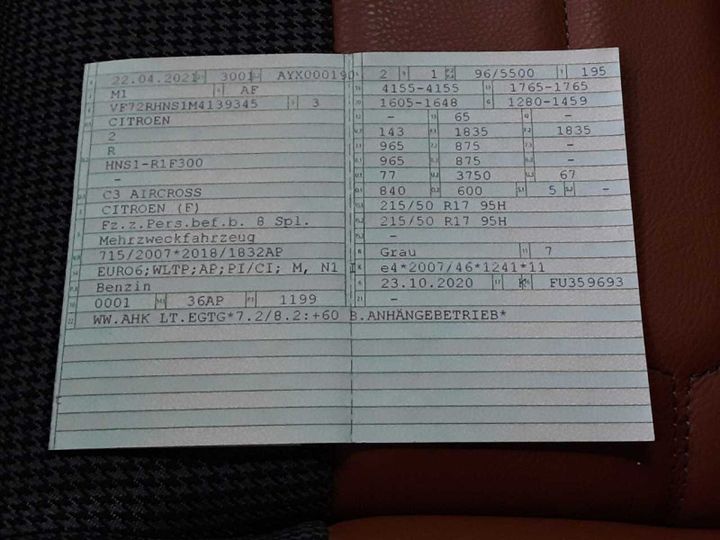 22.04.2021 3001 AYX000190
M1 AF
VF72RHNS1M4139345 3
CITROEN
2
R
HNS1-R1F300
-
C3 AIRCROSS
CITROEN (F)
Fz.z.Pers.bef.b. 8 Spl.
Mehrzweckfahrzeug
715/2007*2018/1832AP
EURO6;WLTP;AP;PI/CI; M, N1 I
Benzin
0001 36AP 1199
2 1 96/5500 195
4155-4155 1765-1765
1605-1648 1280-1459
- 65 -
143 1835 1835
965 875 -
965 875 -
77 3750 67
840 600 5 -
215/50 R17 95H
215/50 R17 95H
-
Grau 7
e4*2007/46*1241*11
23.10.2020 K FU359693
-
WW.AHK LT.EGTG*7.2/8.2:+60 B.ANHÄNGEBETRIEB*